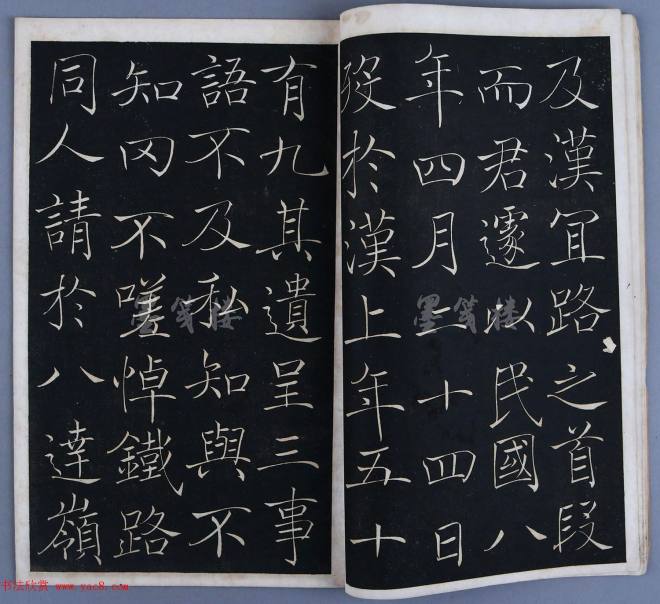 及漢冝路之首段
而君遽以民國八
年四月二十四日
歿於漢上年五十
有九其遺呈三事
語不及私知與不
知罔不嗟悼鐵路
同人請於八達嶺
墨笺楼
墨笺楼
书法欣赏 www.yac8.com